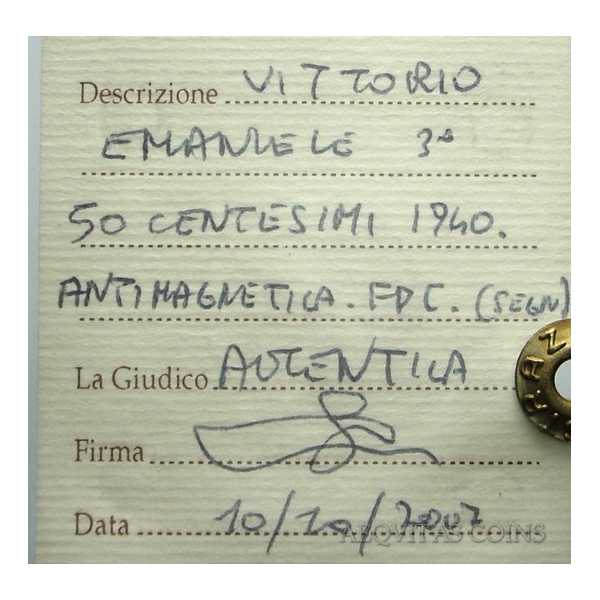 Descrizione VITTORIO
EMANUELE 3°
50 CENTESIMI 1940.
ANTIMAGNETICA. FDC. (SEGNI)
La Giudico AUTENTICA
Firma
Data 10/10/2007
AEQVITAS COINS